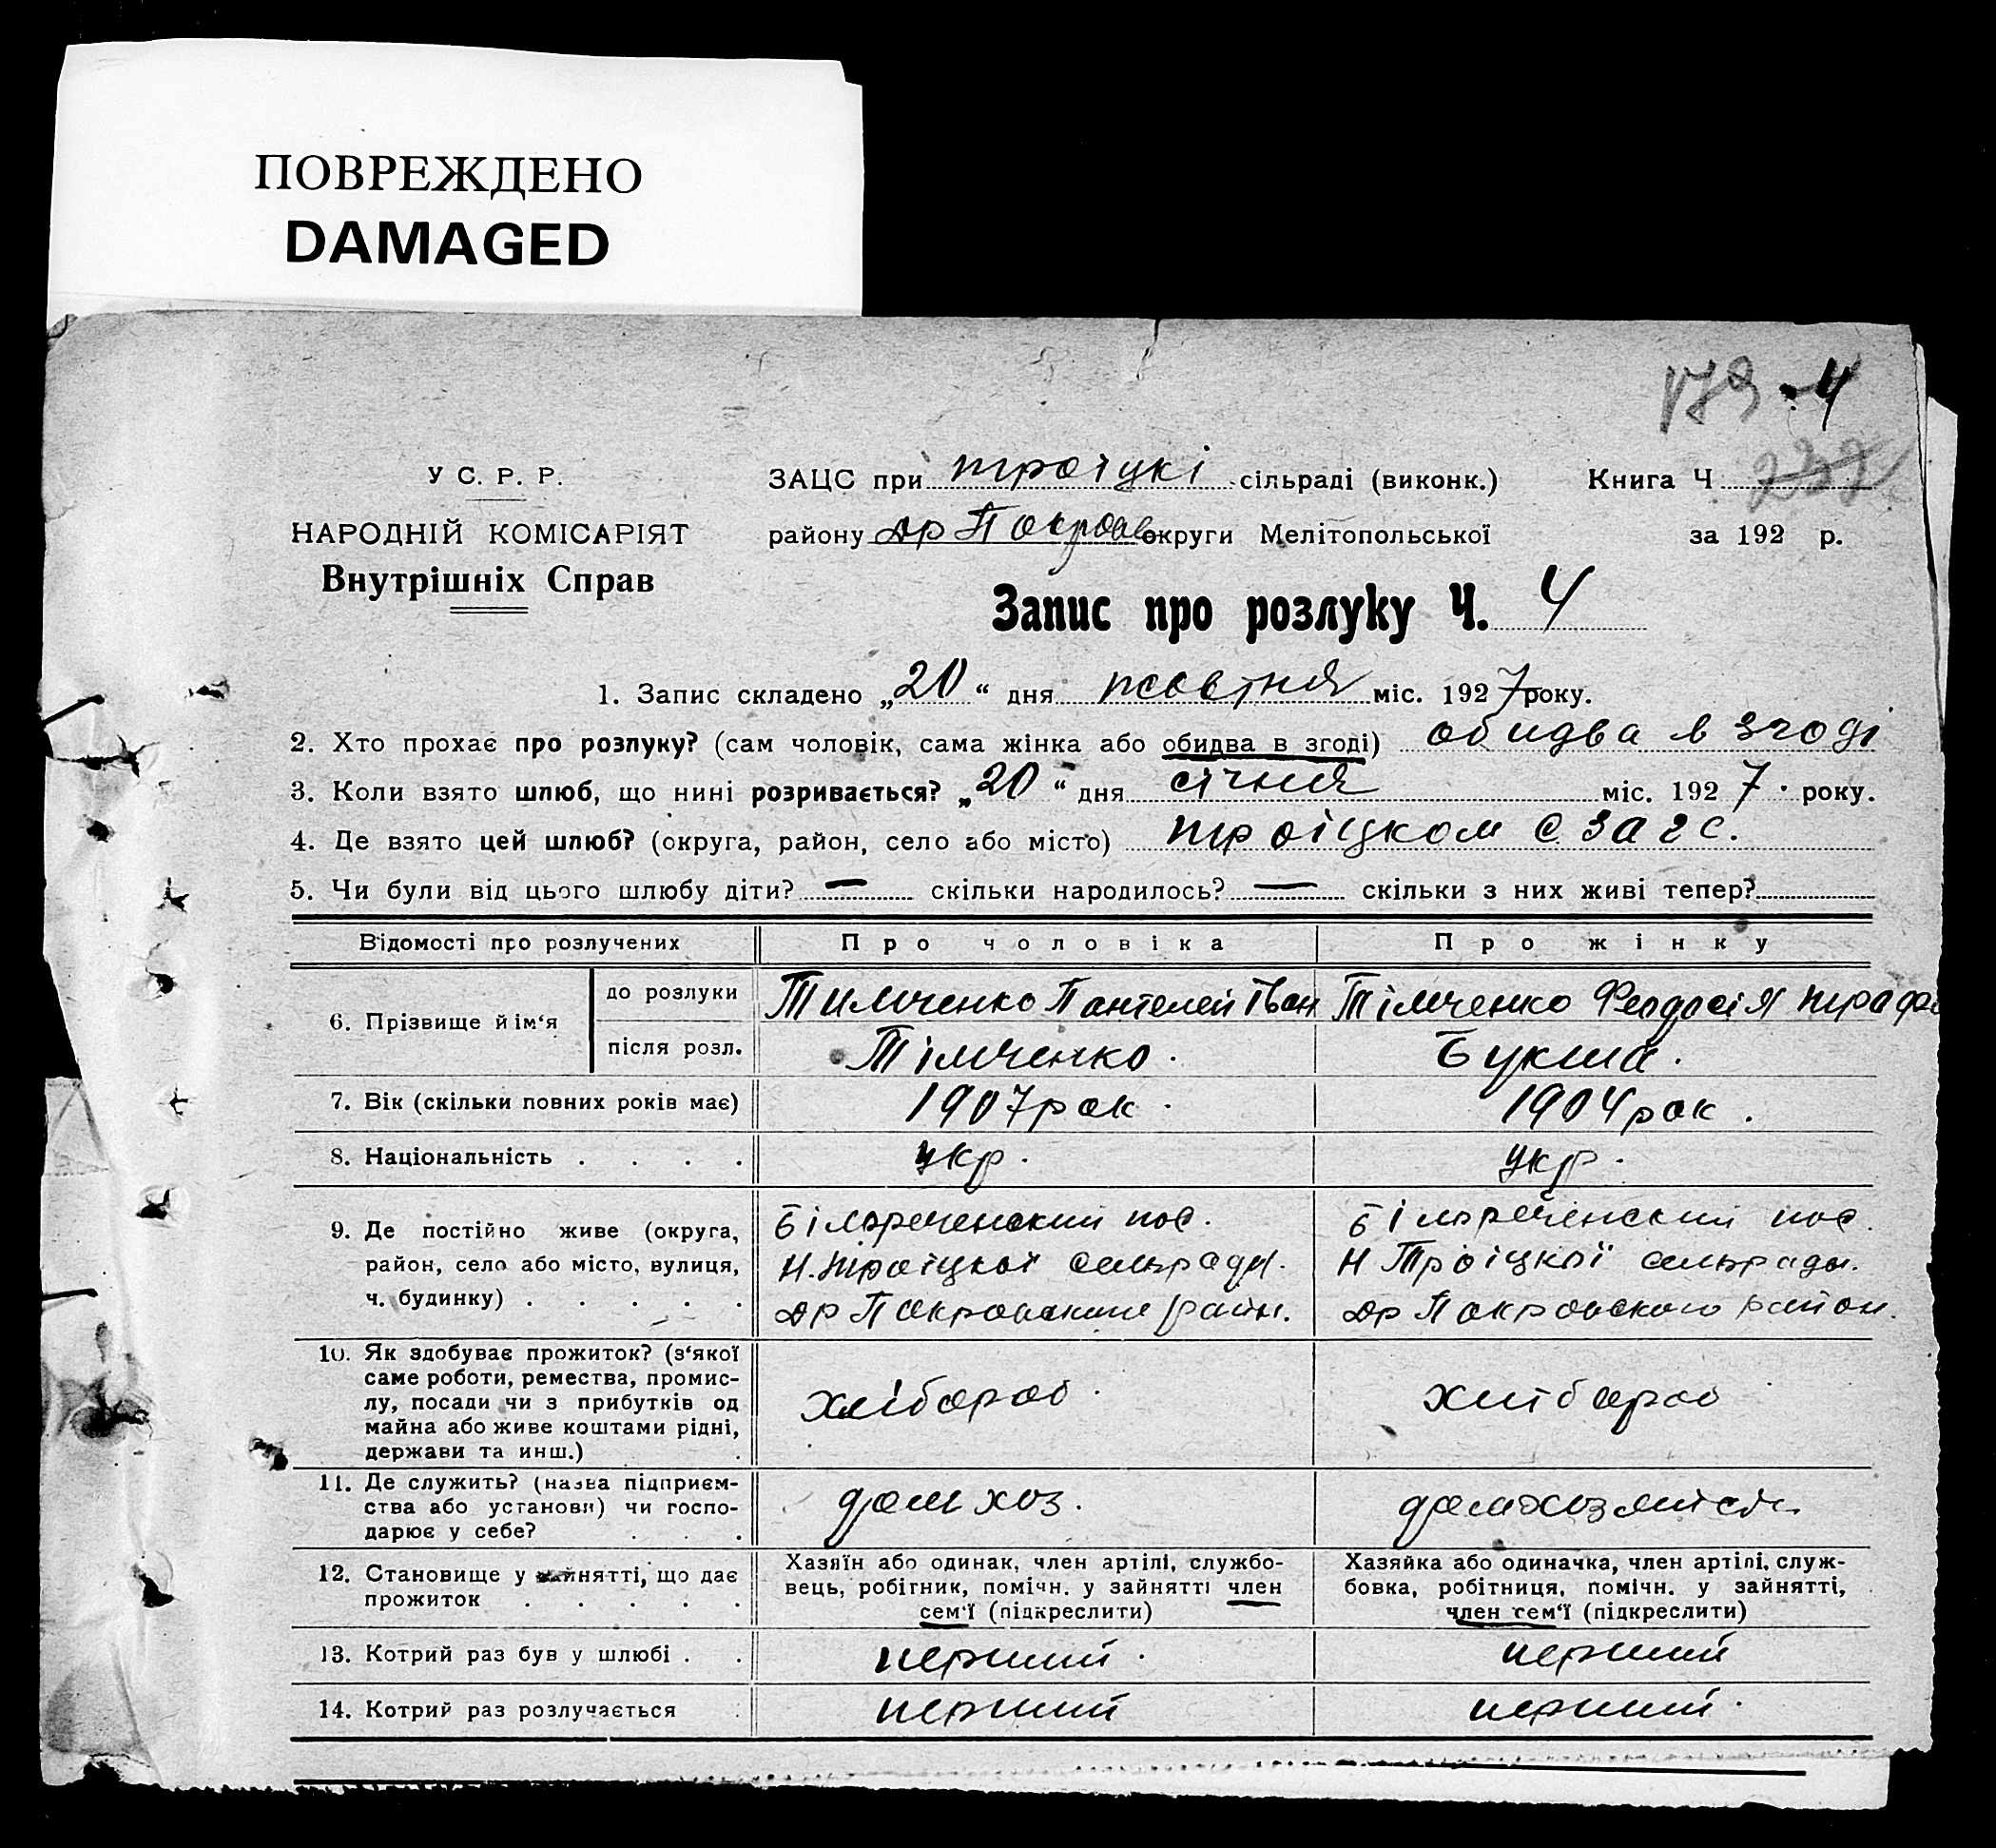 ПОВРЕЖДЕНО
DAMAGED
179 4
232
У С. Р. Р.
НАРОДНІЙ КОМІСАРІЯТ
Внутрішніх Справ
ЗАЦС при троіцкі сільраді (виконк.) Книга Ч
району др Покровс округи Мелітопольської за 192 р.
Запис про розлуку Ч. 4
1. Запис складено „20“ дня жовтня міс. 1927 року.
2. Хто прохає про розлуку? (сам чоловік, сама жінка або обидва в згоді) обидва в згоді
3. Коли взято шлюб, що нині розривається? „20“ дня січня міс. 1927 року.
4. Де взято цей шлюб? (округа, район, село або місто) троіцком С загс.
5. Чи були від цього шлюбу діти? — скільки народилось? — скільки з них живі тепер?
Відомості про розлучених Про чоловіка Про жінку
6. Прізвище й ім‘я до розлуки Тимченко Пантелей Іван Тімченко Феодосія
після розл. Тімченко. Букша.
7. Вік (скільки повних років має) 1907 рок. 1904 рок.
8. Національність . . . . укр. укр.
9. Де постійно живе (округа, Білореченский пос. Білореченский пос.
район, село або місто, вулиця, Н. Троіцкоі сельради. Н Троіцкої сельради.
ч. будинку) . . . . . др Покровський район. др Покровского район.
10. Як здобуває прожиток? (з‘якої
саме роботи, ремества, промис-
лу, посади чи з прибутків од хлібороб. хлібороб
майна або живе коштами рідні,
держави та инш.) .
11. Де служить? (назва підприєм-
ства або установи) чи госпо- дом хоз.
дарює у себе? . . .
12. Становище у зайнятті, що дає
прожиток . . . . .
Хазяїн або одинак, член артілі, службо-
вець, робітник, помічн. у зайнятті член
сем‘ї (підкреслити)
Хазяйка або одиначка, член артілі, служ-
бовка, робітниця, помічн. у зайнятті,
член сем‘ї (підкреслити)
13. Котрий раз був у шлюбі . . перший. перший
14. Котрий раз розлучається перший перший.